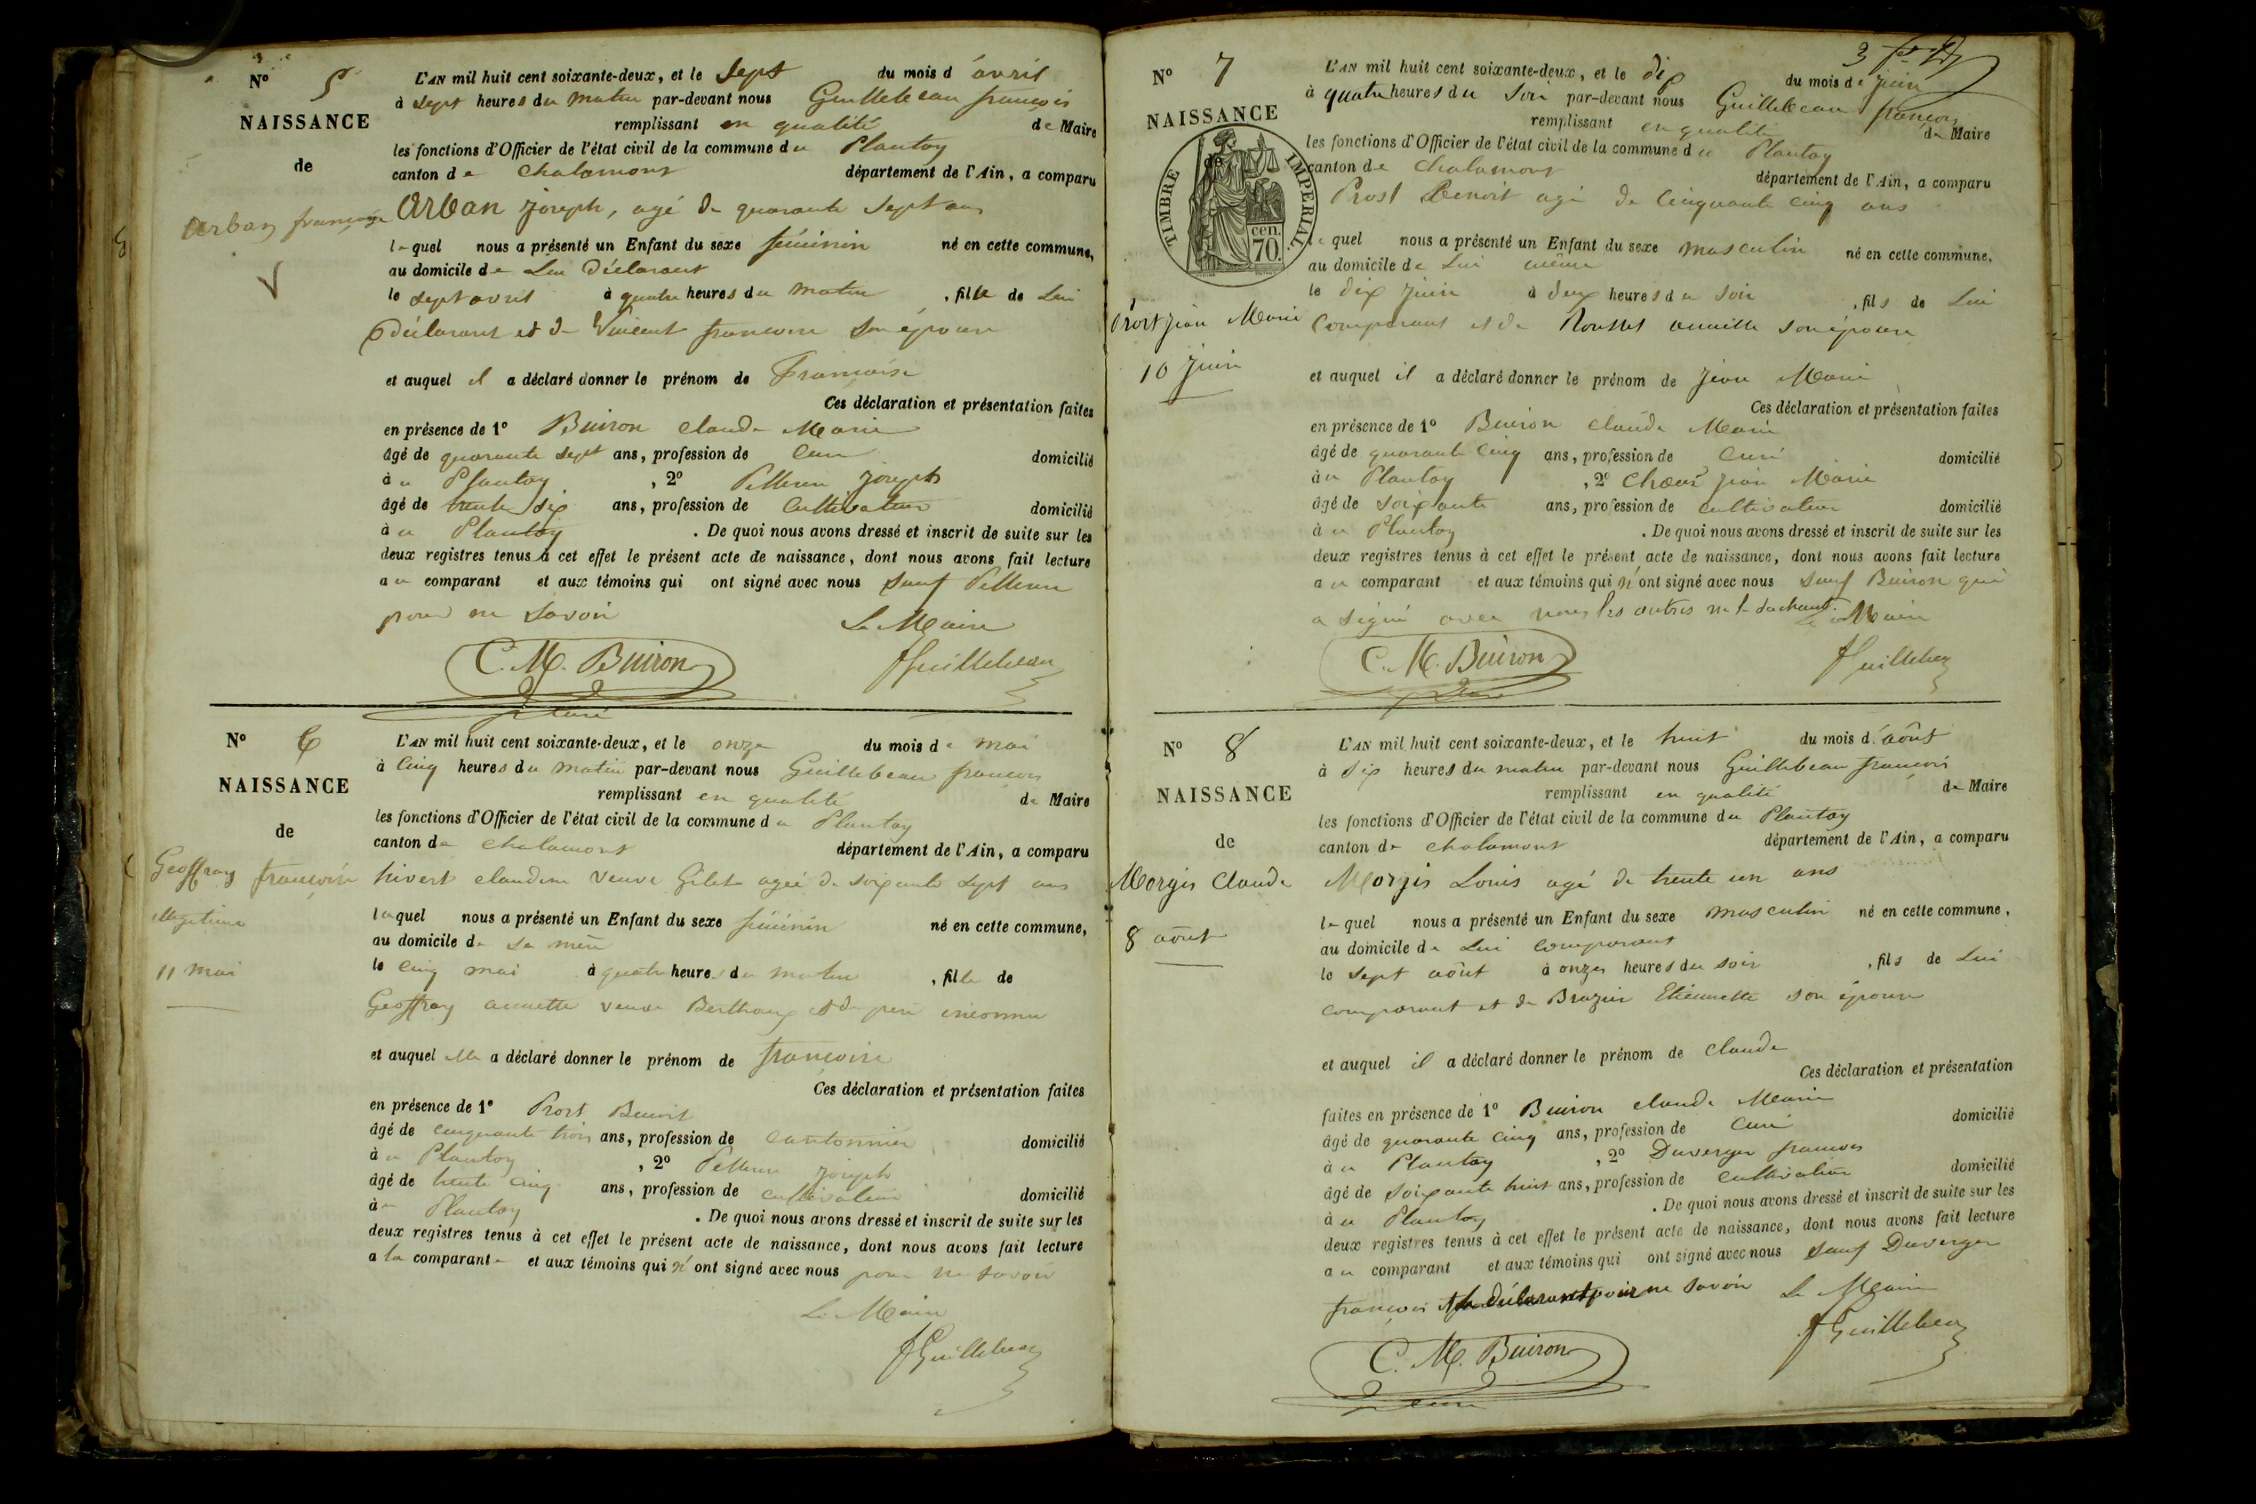 Nº 5
NAISSANCE
de
Arban françoise
L'AN mil huit cent soixante-deux, et le sept du mois d'avril
à sept heures du matin par-devant nous Guillebeau françois
remplissant en qualité de Maire
les fonctions d'Officier de l'état civil de la commune du Plantay
canton de chalamont département de l'Ain, a comparu
Arban joseph, agé de quarante sept ans
lequel nous a présenté un Enfant du sexe féminin né en cette commune,
au domicile de Lui Déclarant
le sept avril à quatre heures du matin, fille de Lui
déclarant et de Vincent francoise son épouse
et auquel il a déclaré donner le prénom de Francoise
Ces déclaration et présentation faites
en présence de 1º Buiron claude Marie
âgé de quarante sept ans, profession de Curé domicilié
au Plantay, 2º Pelterin joseph
âgé de trente six ans, profession de Cultivateur domicilié
au Plantay. De quoi nous avons dressé et inscrit de suite sur les
deux registres tenus à cet effet le présent acte de naissance, dont nous avons fait lecture
au comparant et aux témoins qui ont signé avec nous sauf
pour ne savoir Le Maire
C. M. Buiron fGuillebeau
curé
Nº 6
NAISSANCE
de
Geoffray françoise
illegitime
11 mai
L'AN mil huit cent soixante-deux, et le onze du mois de mai
à Cinq heures du matin par-devant nous Guillebeau françois
remplissant en qualité de Maire
les fonctions d'Officier de l'état civil de la commune du Plantay
canton de chalamont département de l'Ain, a comparu
hivert claudine veuve Gilet agée de soixante sept ans
laquel nous a présenté un Enfant du sexe féminin né en cette commune,
au domicile de sa mère
le cinq mai à quatre heures du matin, fille de
Geoffray annette veuve Berthoux et de père inconnu
et auquel elle a déclaré donner le prénom de françoise
Ces déclaration et présentation faites
en présence de 1º Prost Benoit
âgé de cinquante trois ans, profession de cantonnier domicilié
au Plantay, 2º joseph
âgé de trente cinq ans, profession de cultivateur domicilié
au Plantay. De quoi nous avons dressé et inscrit de suite sur les
deux registres tenus à cet effet le présent acte de naissance, dont nous avons fait lecture
a la comparante et aux témoins qui n'ont signé avec nous pour ne savoir
Le Maire
fGuillebeau
3
Nº 7
NAISSANCE
de
TIMBRE IMPERIAL
cen. 70.
Prost jean Marie
10 juin
L'AN mil huit cent soixante-deux, et le dix du mois de juin
à quatre heures du soir par-devant nous Guillebeau françois
remplissant en qualité de Maire
les fonctions d'Officier de l'état civil de la commune du Plantay
canton de chalamont département de l'Ain, a comparu
Prost Benoit agé de cinquante cinq ans
lequel nous a présenté un Enfant du sexe masculin né en cette commune,
au domicile de lui même
le dix juin à deux heures du soir, fils de Lui
Comparant et de Rousset annette son épouse
et auquel il a déclaré donner le prénom de jean Marie
Ces déclaration et présentation faites
en présence de 1º Buiron claude Marie
âgé de quarante cinq ans, profession de Curé domicilié
au Plantay, 2º jean Marie
âgé de soixante ans, profession de cultivateur domicilié
au Plantay. De quoi nous avons dressé et inscrit de suite sur les
deux registres tenus à cet effet le présent acte de naissance, dont nous avons fait lecture
au comparant et aux témoins qui n'ont signé avec nous sauf Buiron qui
a signé avec nous les autres ne le sachant. Le Maire
C. M. Buiron fGuillebeau
curé
Nº 8
NAISSANCE
de
Morgis Claude
8 août
L'AN mil huit cent soixante-deux, et le huit du mois d'août
à six heures du matin par-devant nous Guillebeau françois
remplissant en qualité de Maire
les fonctions d'Officier de l'état civil de la commune du Plantay
canton de chalamont département de l'Ain, a comparu
Morgis Louis agé de trente un ans
lequel nous a présenté un Enfant du sexe masculin né en cette commune,
au domicile de Lui comparant
le sept août à onze heures du soir, fils de Lui
comparant et de Brazier Etiennette son épouse
et auquel il a déclaré donner le prénom de claude
Ces déclaration et présentation
faites en présence de 1º Buiron claude Marie
âgé de quarante cinq ans, profession de Curé domicilié
au Plantay, 2º Duverger francois
âgé de soixante huit ans, profession de cultivateur domicilié
au Plantay. De quoi nous avons dressé et inscrit de suite sur les
deux registres tenus à cet effet le présent acte de naissance, dont nous avons fait lecture
au comparant et aux témoins qui ont signé avec nous sauf Duverger
françois et le déclarant pour ne savoir Le Maire
C. M. Buiron fGuillebeau
curé